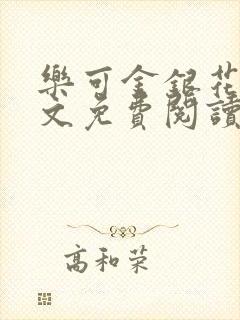 樂可金銀花
文免費閱讀
高和荣